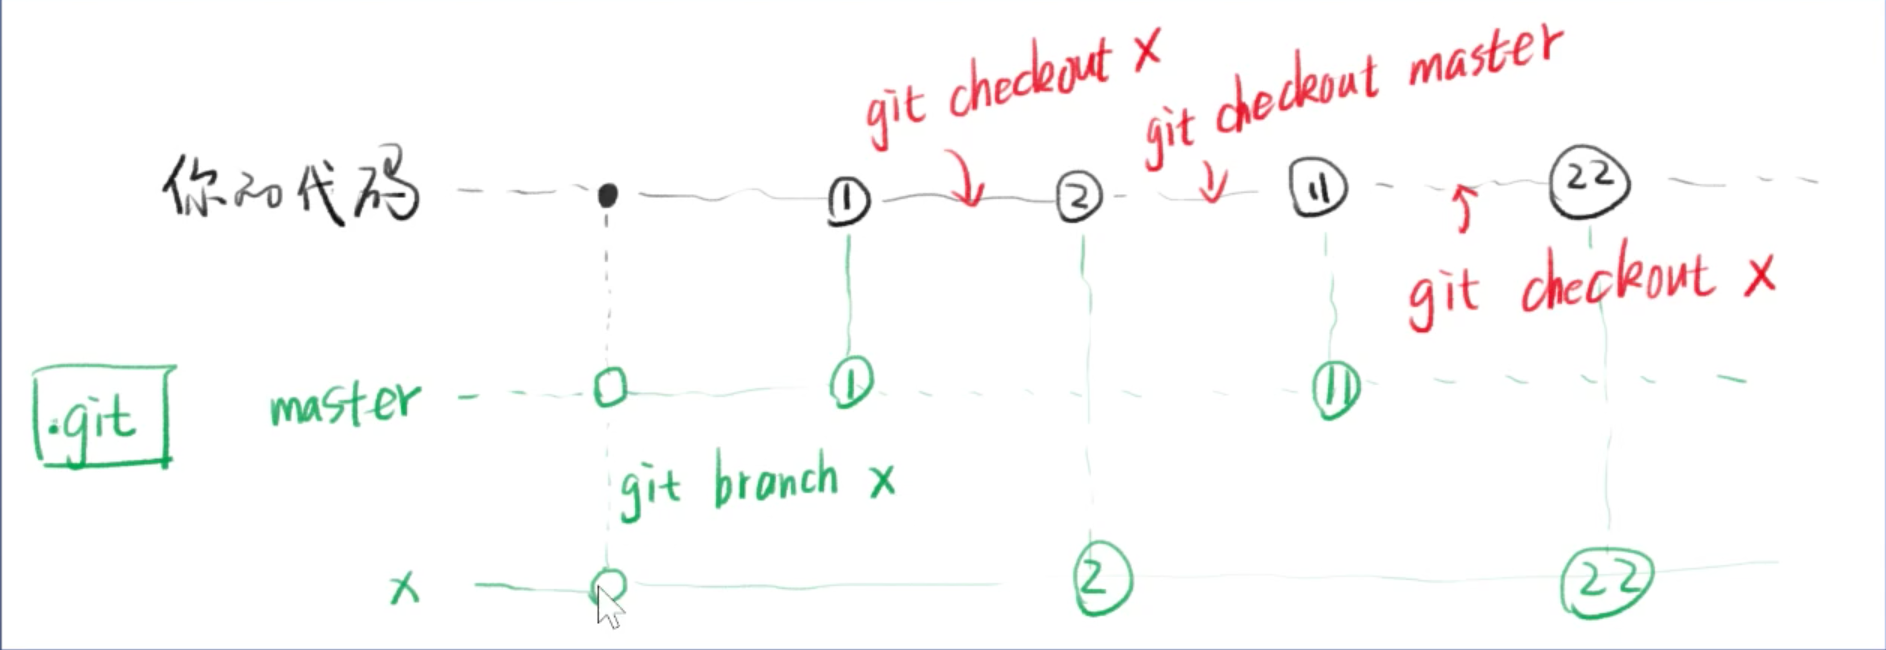 git checkout x
git checkout master
你的代码 ① ② ⑪ ㉒
git checkout x
.git master ① ⑪
git branch x
x ② ㉒